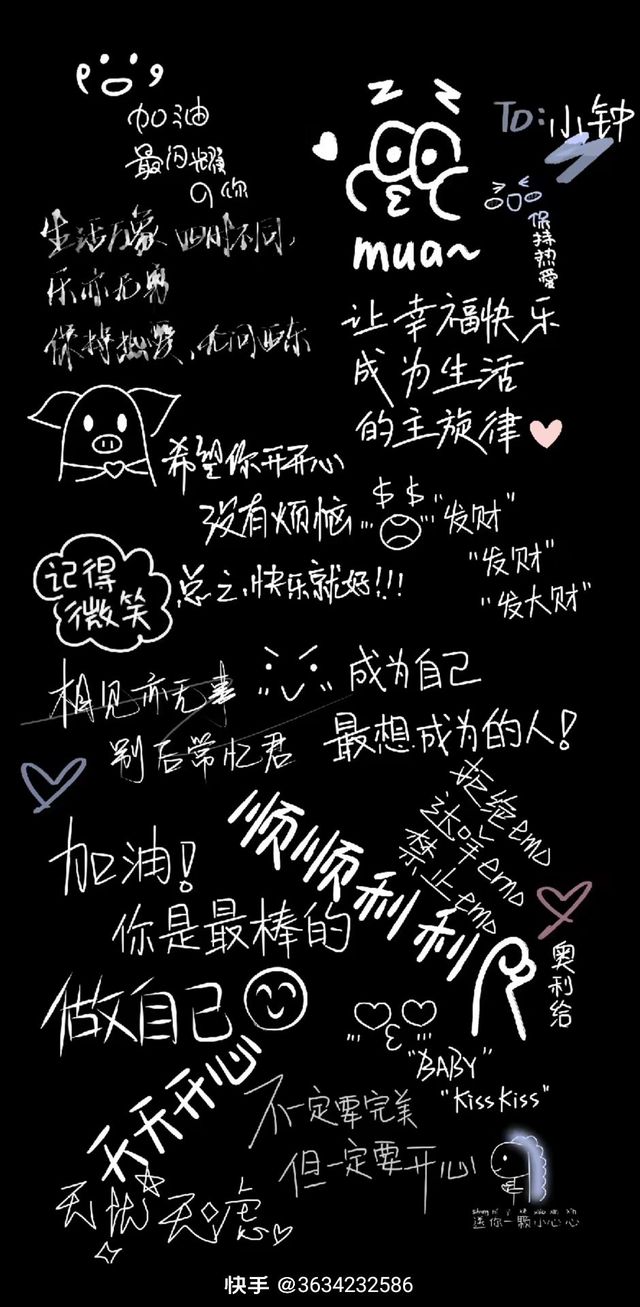 加油
最闪耀
的你
TO:小钟
保持热爱
mua~
生活万象 四时不同,
乐亦无穷
保持热爱,无问西东
让幸福快乐
成为生活
的主旋律
希望你开开心
没有烦恼...
$ $
"发财"
"发财"
"发大财"
记得
微笑
总之,快乐就好!!!
相见亦无事
别后常忆君
成为自己
最想成为的人!
拒绝emo
达咩emo
禁止emo
顺顺利利
加油!
你是最棒的
奥利给
做自己
"BABY"
"KissKiss"
天天开心
不一定要完美
但一定要开心
无忧无虑
sòng nǐ yī kē xiǎo xīn xīn
送你一颗小心心
快手 @3634232586